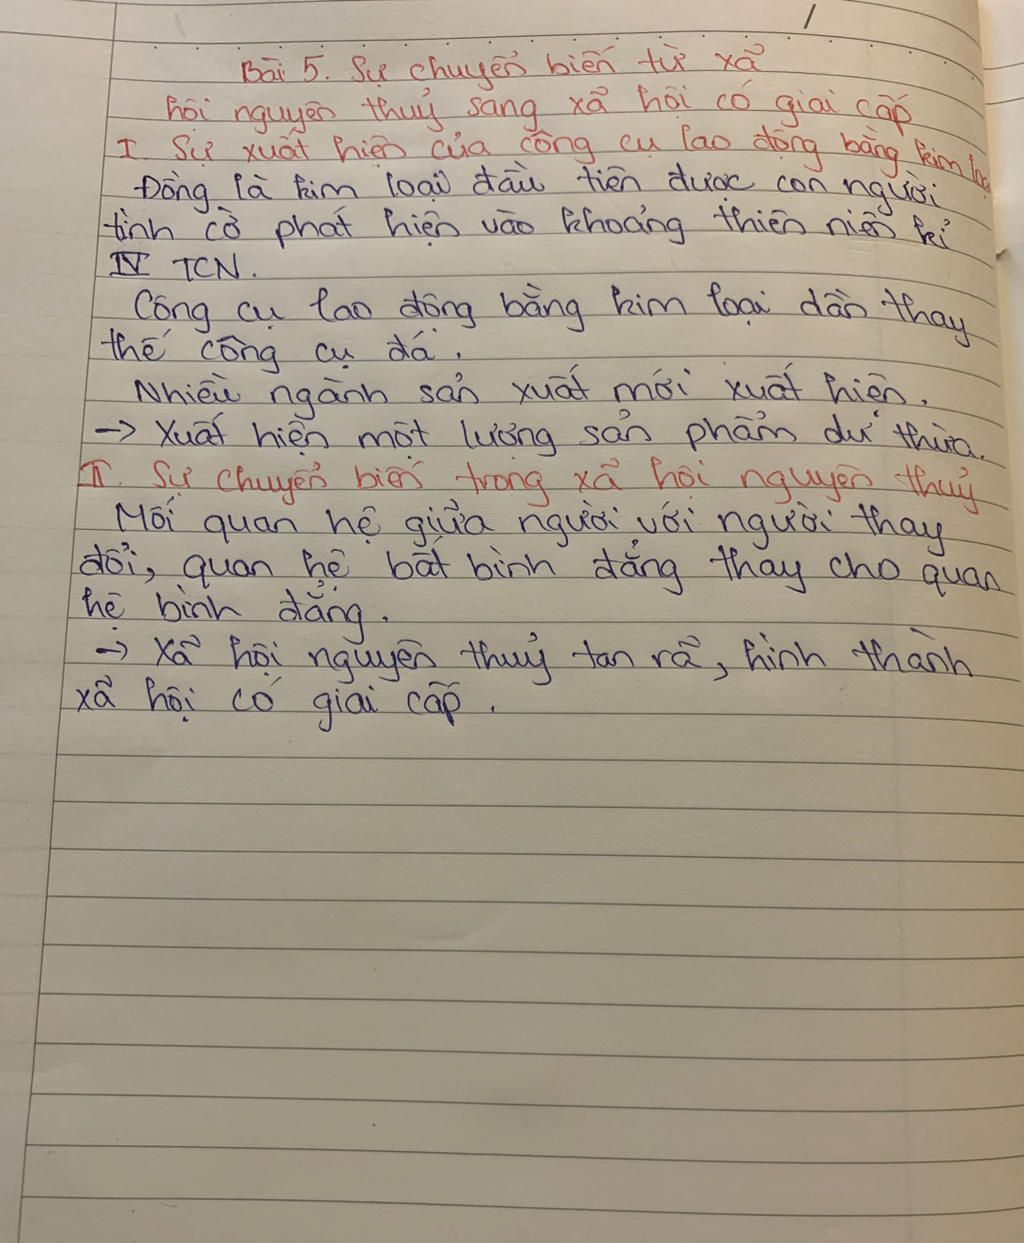 Bài 5. Sự chuyển biến từ xã
hội nguyên thuỷ sang xã hội có giai cấp
I. Sự xuất hiện của công cụ lao động bằng kim loại
Đồng là kim loại đầu tiên được con người
tình cờ phát hiện vào khoảng thiên niên kỉ
IV TCN.
Công cụ lao động bằng kim loại dần thay
thế công cụ đá.
Nhiều ngành sản xuất mới xuất hiện.
→ Xuất hiện một lượng sản phẩm dư thừa.
II. Sự chuyển biến trong xã hội nguyên thuỷ
Mối quan hệ giữa người với người thay
đổi, quan hệ bất bình đẳng thay cho quan
hệ bình đẳng.
→ Xã hội nguyên thuỷ tan rã, hình thành
xã hội có giai cấp.